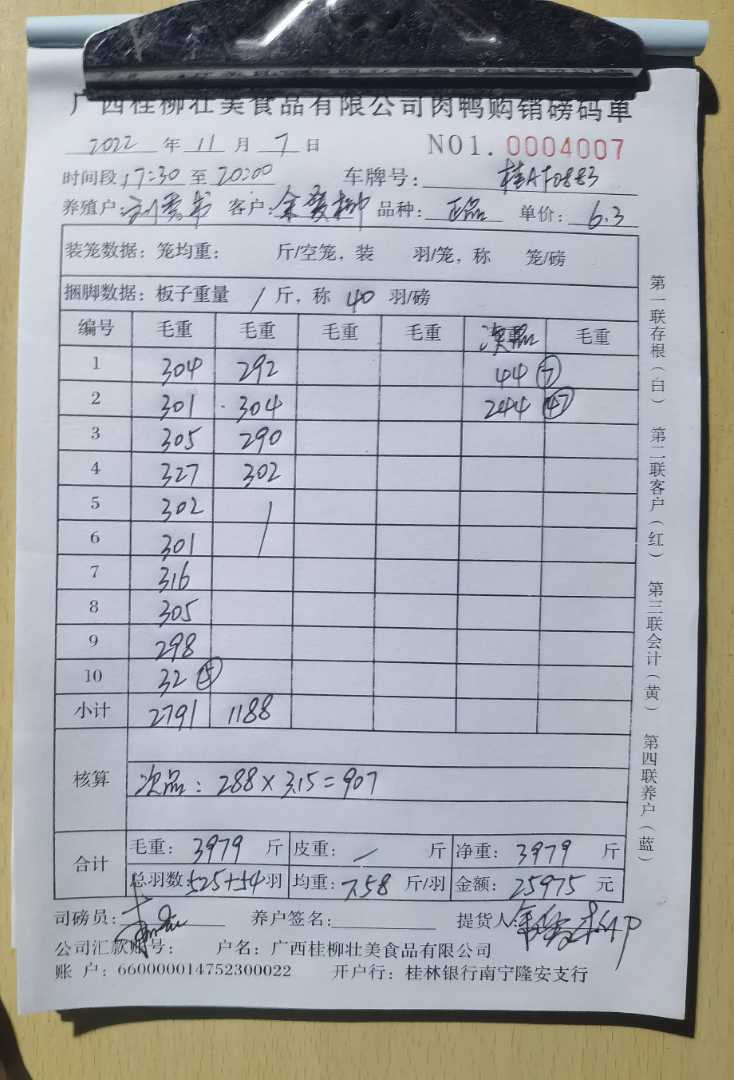 广西桂柳壮美食品有限公司肉鸭购销磅码单
2022 年 11 月 7 日 NO1. 0004007
时间段: 17:30 至 20:00 车牌号: 桂AF0883
养殖户: 客户: 品种: 正品 单价: 6.3
装笼数据: 笼均重: 斤/空笼, 装 羽/笼, 称 笼/磅
捆脚数据: 板子重量 / 斤, 称 40 羽/磅
编号 毛重 毛重 毛重 毛重 次品 毛重
1 304 292 44 ⑦
2 301 304 244 ㊼
3 305 290
4 327 302
5 302
6 301
7 316
8 305
9 298
10 32
小计 2791 1188
核算 次品: 288×3.15=907
合计 毛重: 3979 斤 皮重: / 斤 净重: 3979 斤
总羽数: 525+54 羽 均重: 7.58 斤/羽 金额: 25975 元
司磅员: 养户签名: 提货人:
公司汇款账号: 户名: 广西桂柳壮美食品有限公司
账 户: 660000014752300022 开户行: 桂林银行南宁隆安支行
第一联存根(白) 第二联客户(红) 第三联会计(黄) 第四联养户(蓝)